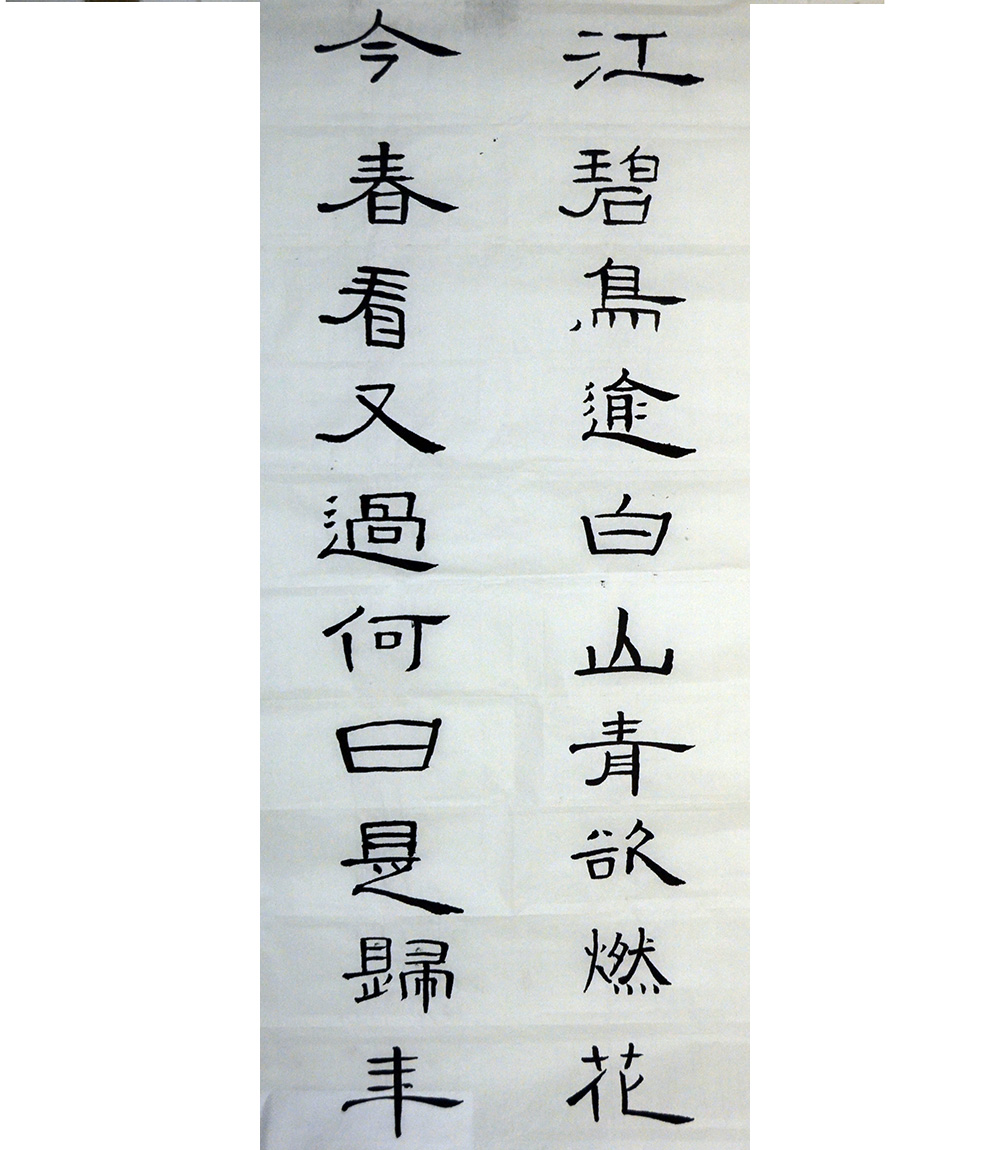 江碧鳥逾白山青欲燃花
今春看又過何日是歸年